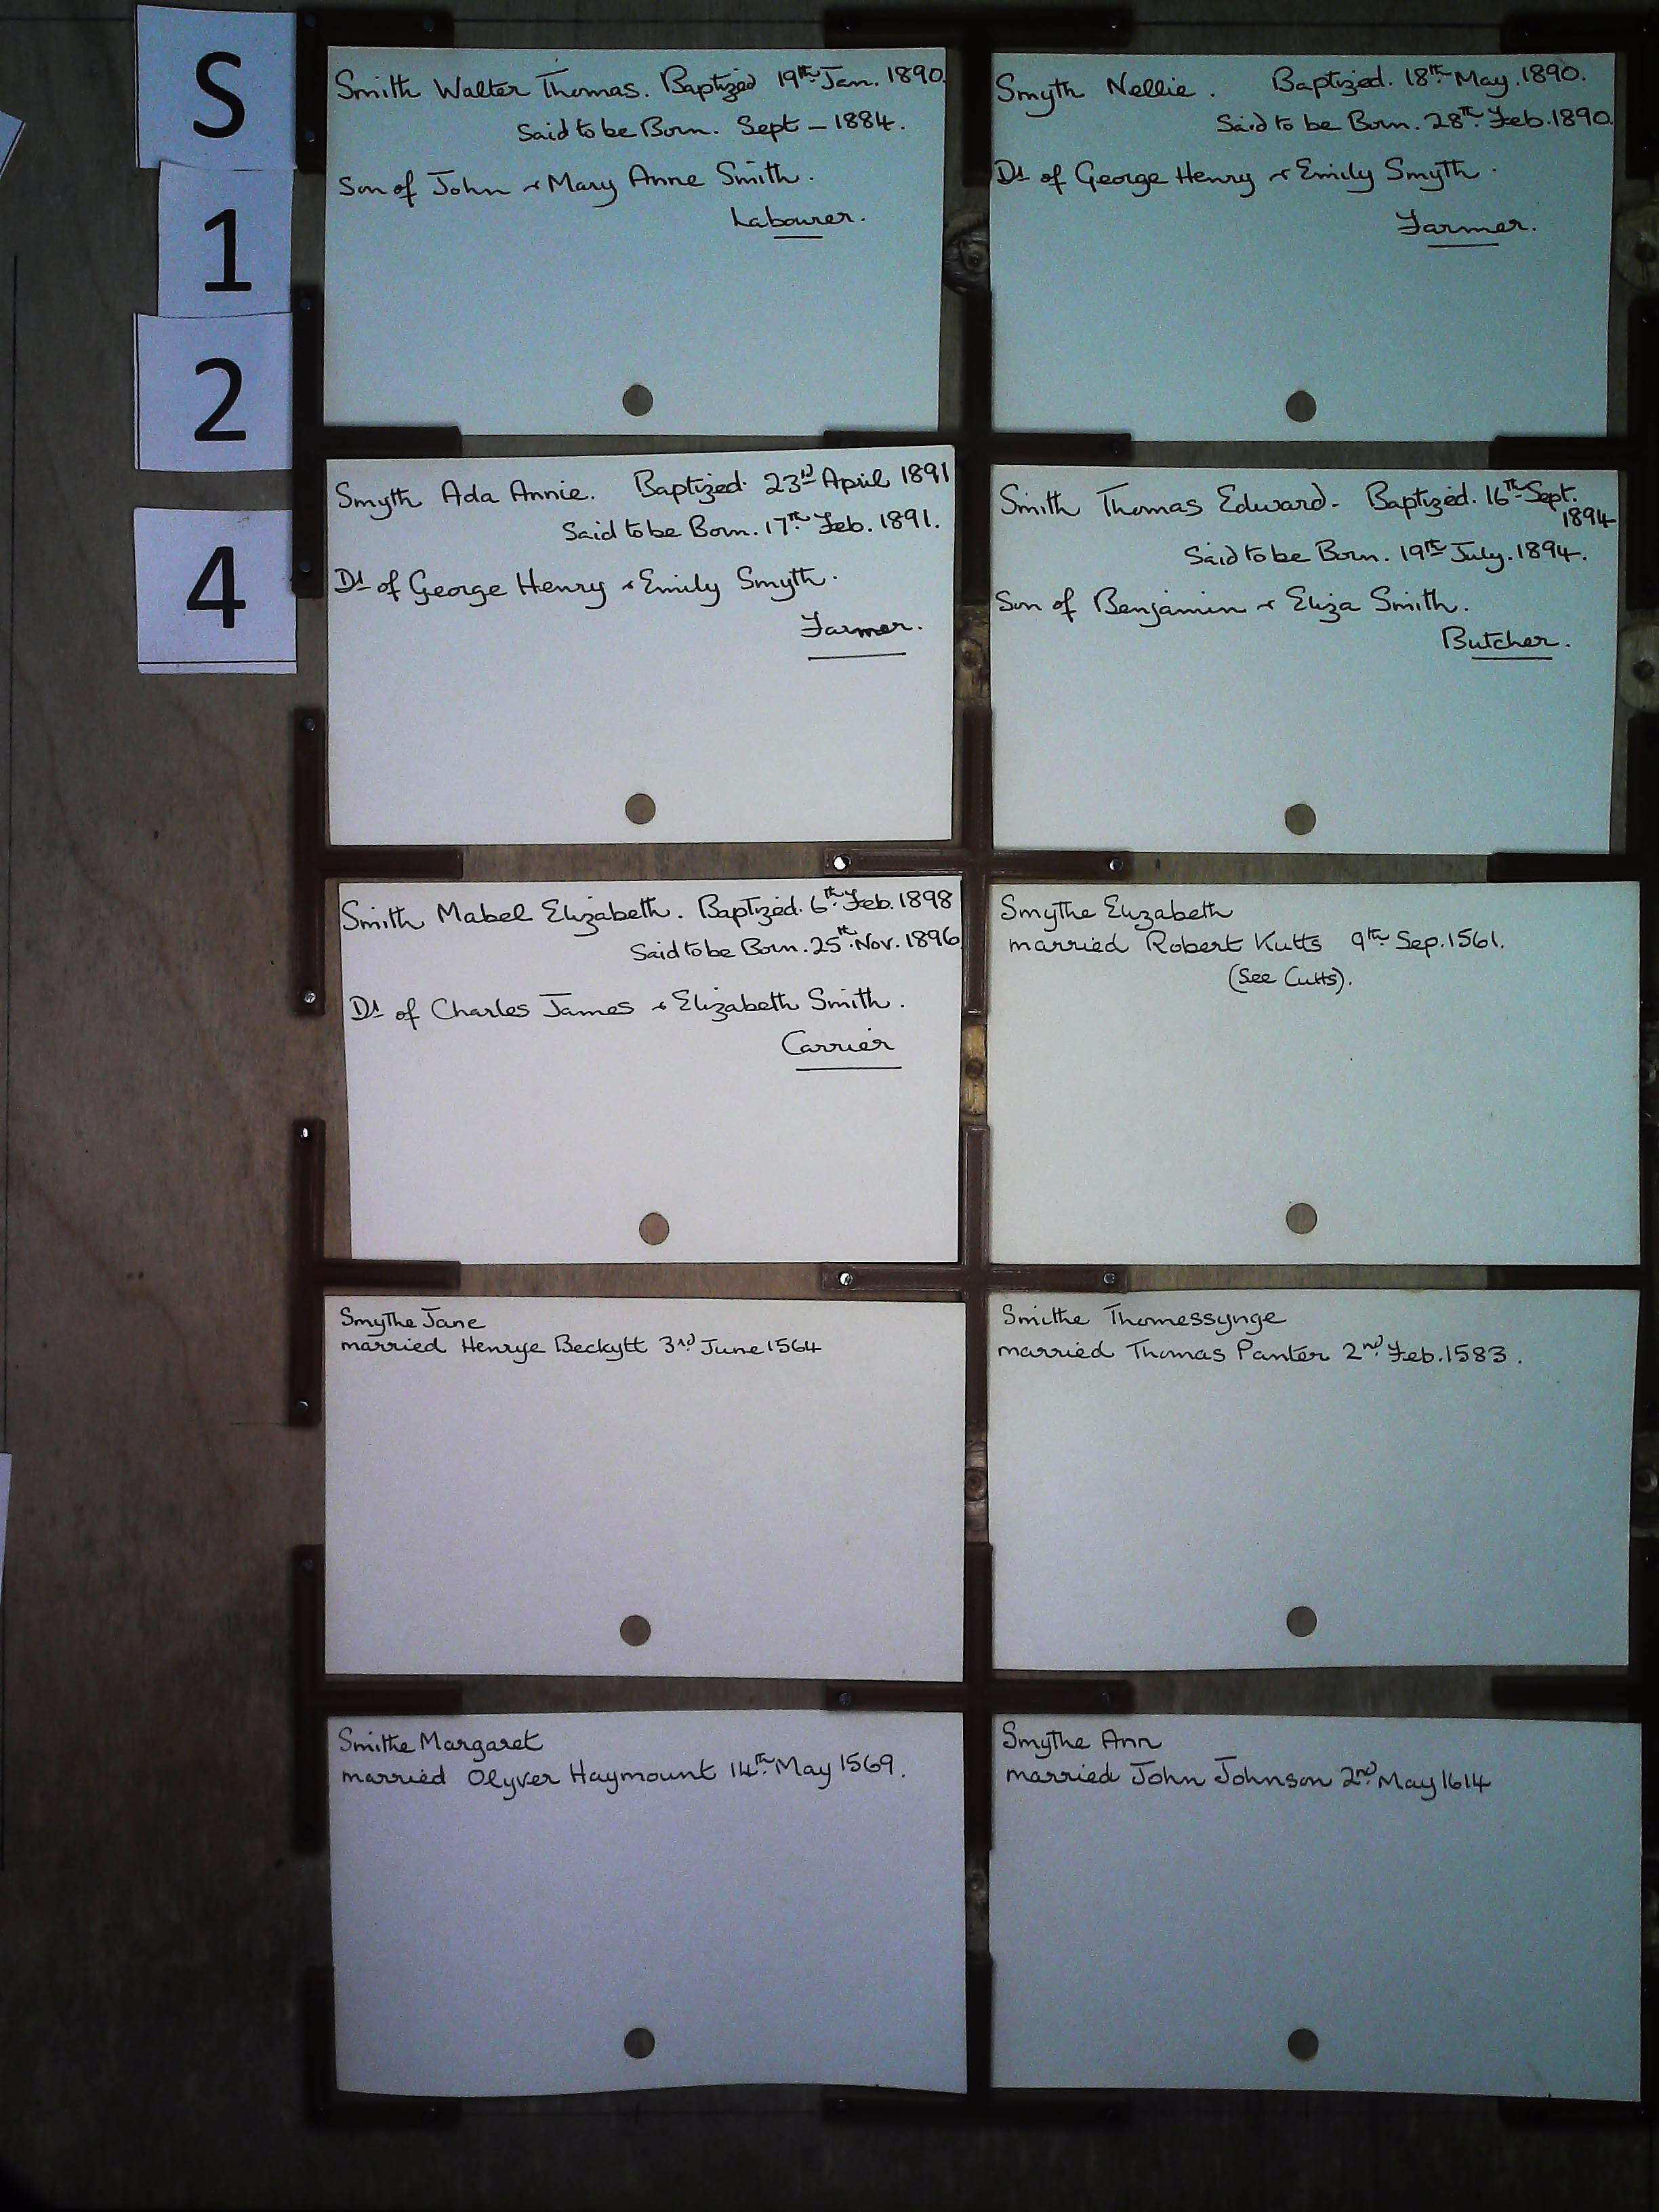 S
1
2
4
Smith Walter Thomas. Baptized 19th Jan. 1890.
Said to be Born. Sept - 1884.
Son of John & Mary Anne Smith.
Labourer.
Smyth Nellie. Baptized. 18th May. 1890.
Said to be Born. 28th Feb. 1890.
Dt of George Henry & Emily Smyth.
Farmer.
Smyth Ada Annie. Baptized. 23rd April 1891
Said to be Born. 17th Feb. 1891.
Dt of George Henry & Emily Smyth.
Farmer.
Smith Thomas Edward. Baptized. 16th Sept.
1894
Said to be Born. 19th July. 1894.
Son of Benjamin & Eliza Smith.
Butcher.
Smith Mabel Elizabeth. Baptized. 6th Feb. 1898
Said to be Born. 25th Nov. 1896
Dt of Charles James & Elizabeth Smith.
Carrier
Smythe Elizabeth
married Robert Kutts 9th Sep. 1561.
(See Cutts).
Smythe Jane
married Henrye Beckytt 3rd June 1564
Smithe Thomessynge
married Thomas Panter 2nd Feb. 1583.
Smithe Margaret
married Olyver Haymount 14th May 1569.
Smythe Ann
married John Johnson 2nd May 1614